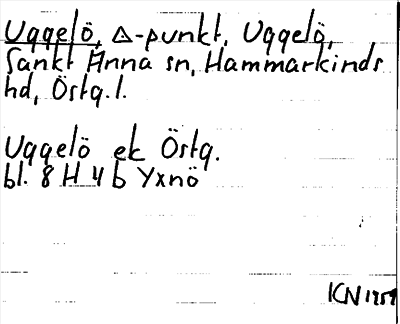 Uggelö, △-punkt, Uggelö,
Sankt Anna sn, Hammarkinds
hd, Östg. l.
Uggelö ek Östg.
bl. 8 H 4 b Yxnö
KN